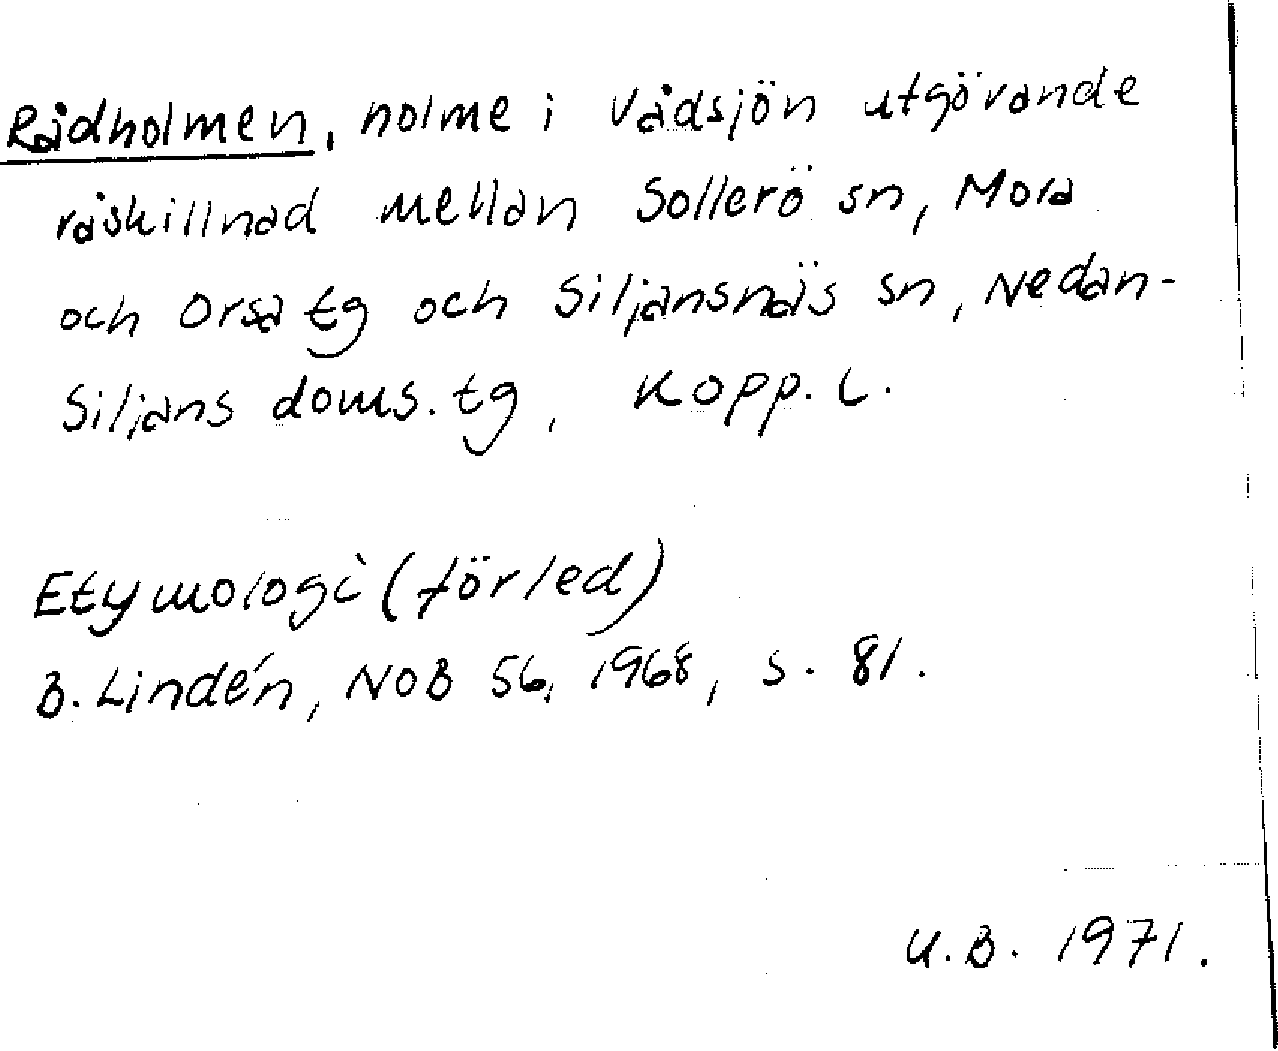 Rådholmen, holme i Vådsjön utgörande
råskillnad mellan Sollerö sn, Mora
och Orsa tg och Siljansnäs sn, Nedan-
Siljans doms. tg, Kopp. L.
Etymologi (förled)
B. Lindén, NOB 56, 1968, s. 81.
U.B. 1971.